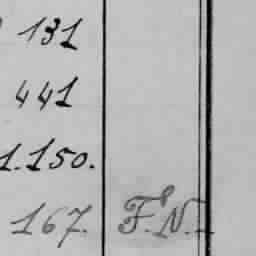 131
441
1.150.
167. F. N.